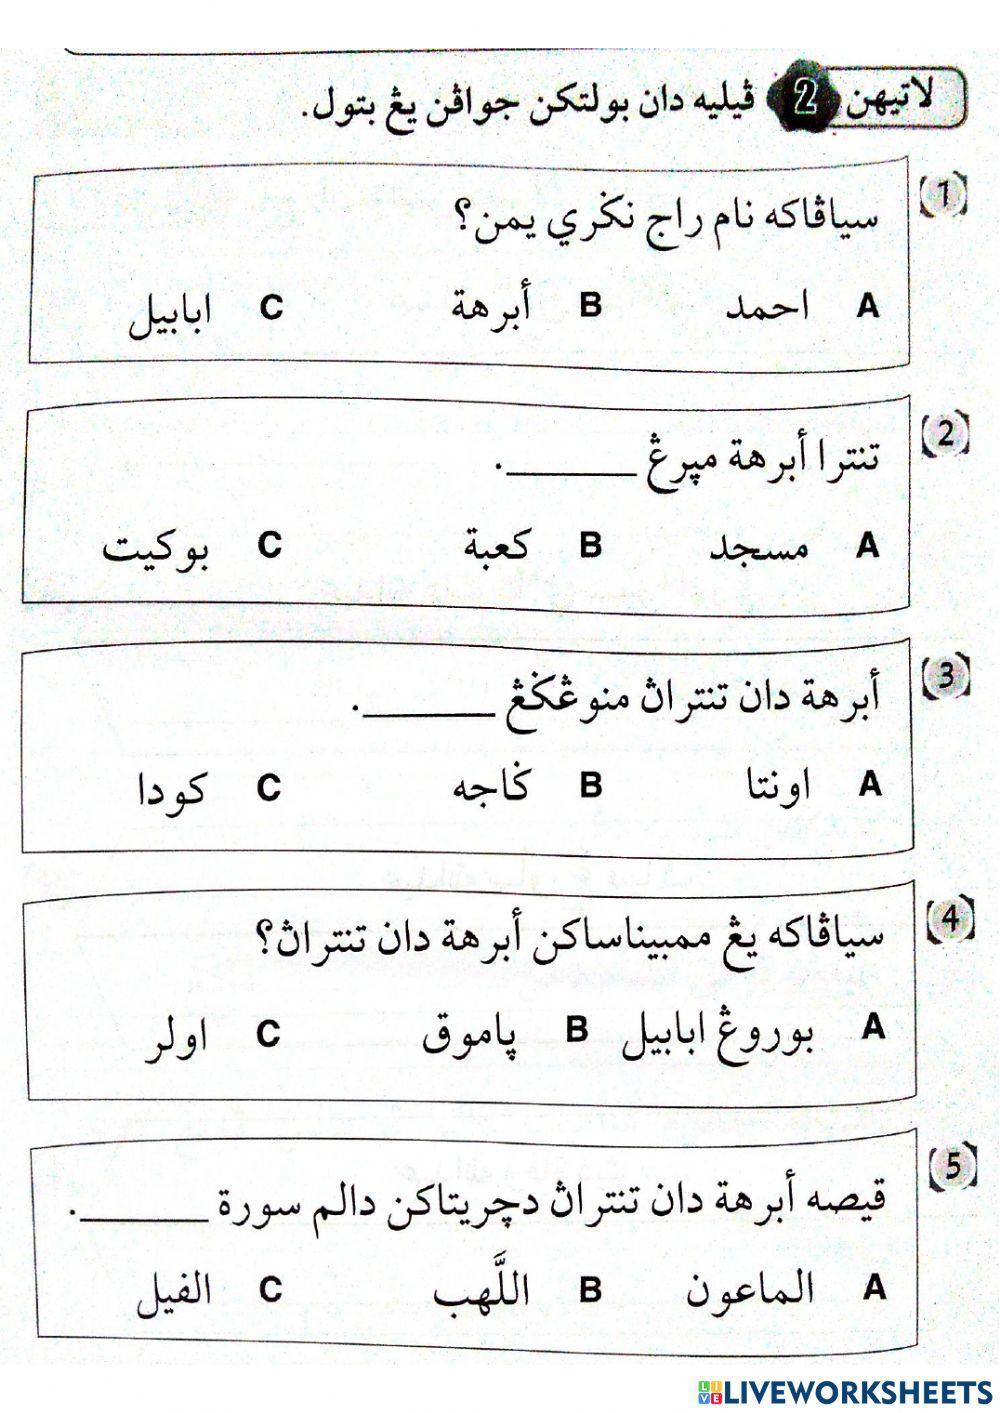 لاتيهن 2 ڤيليه دان بولتكن جواڤن يڠ بتول.
(1) سياڤاكه نام راج نݢري يمن؟
A احمد B أبرهة C ابابيل
(2) تنترا أبرهة مڽرڠ ________.
A مسجد B كعبة C بوكيت
(3) أبرهة دان تنتراڽ منوڠݢڠ ________.
A اونتا B ݢاجه C كودا
(4) سياڤاكه يڠ ممبيناساكن أبرهة دان تنتراڽ؟
A بوروڠ ابابيل B ڽاموق C اولر
(5) قيصه أبرهة دان تنتراڽ دچريتاكن دالم سورة ________.
A الماعون B اللَّهب C الفيل
LIVEWORKSHEETS